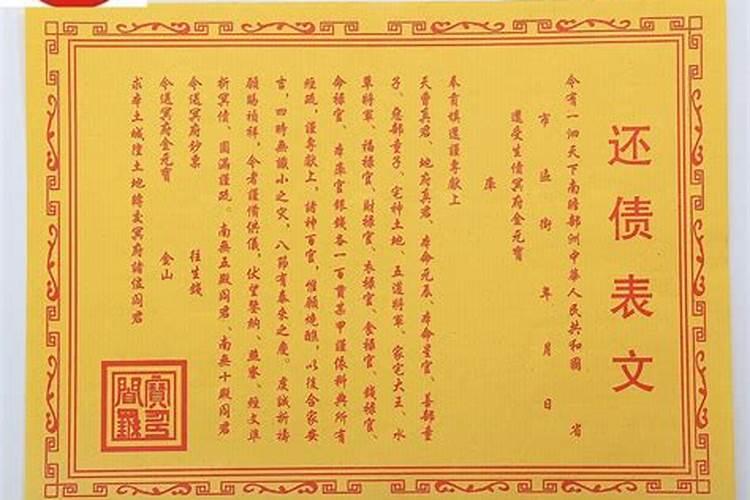 还债表文
今有一泗天下南瞻部洲中華人民共和國 省
市 區 街 年 月 日
還受生債冥府金元寶
庫
奉肯填還謹專獻上
天曹真君、地府真君、本命元辰、本命星官、善部童
子、惡部童子、宅神土地、五道將軍、家宅大王、水
草將軍、福祿官、財祿官、衣祿官、食祿官、錢祿官、
命祿官、本庫官銀錢各一百貫某甲謹依科典所有
經疏，謹專獻上，諸神百官，惟願燒醮，以後合家安
言，四時無識小之災，八節有泰來之慶。虔誠祈禱
願賜禎祥，令者謹備供儀，伏望鑒納、燕寮、經文準
折冥債、圓滿謹疏。南無五殿阎君、南無十殿阎君
令送冥府鈔票 往生錢
令送冥府金元寶 金山
求本土城隍土地轉交冥府諸位阎君